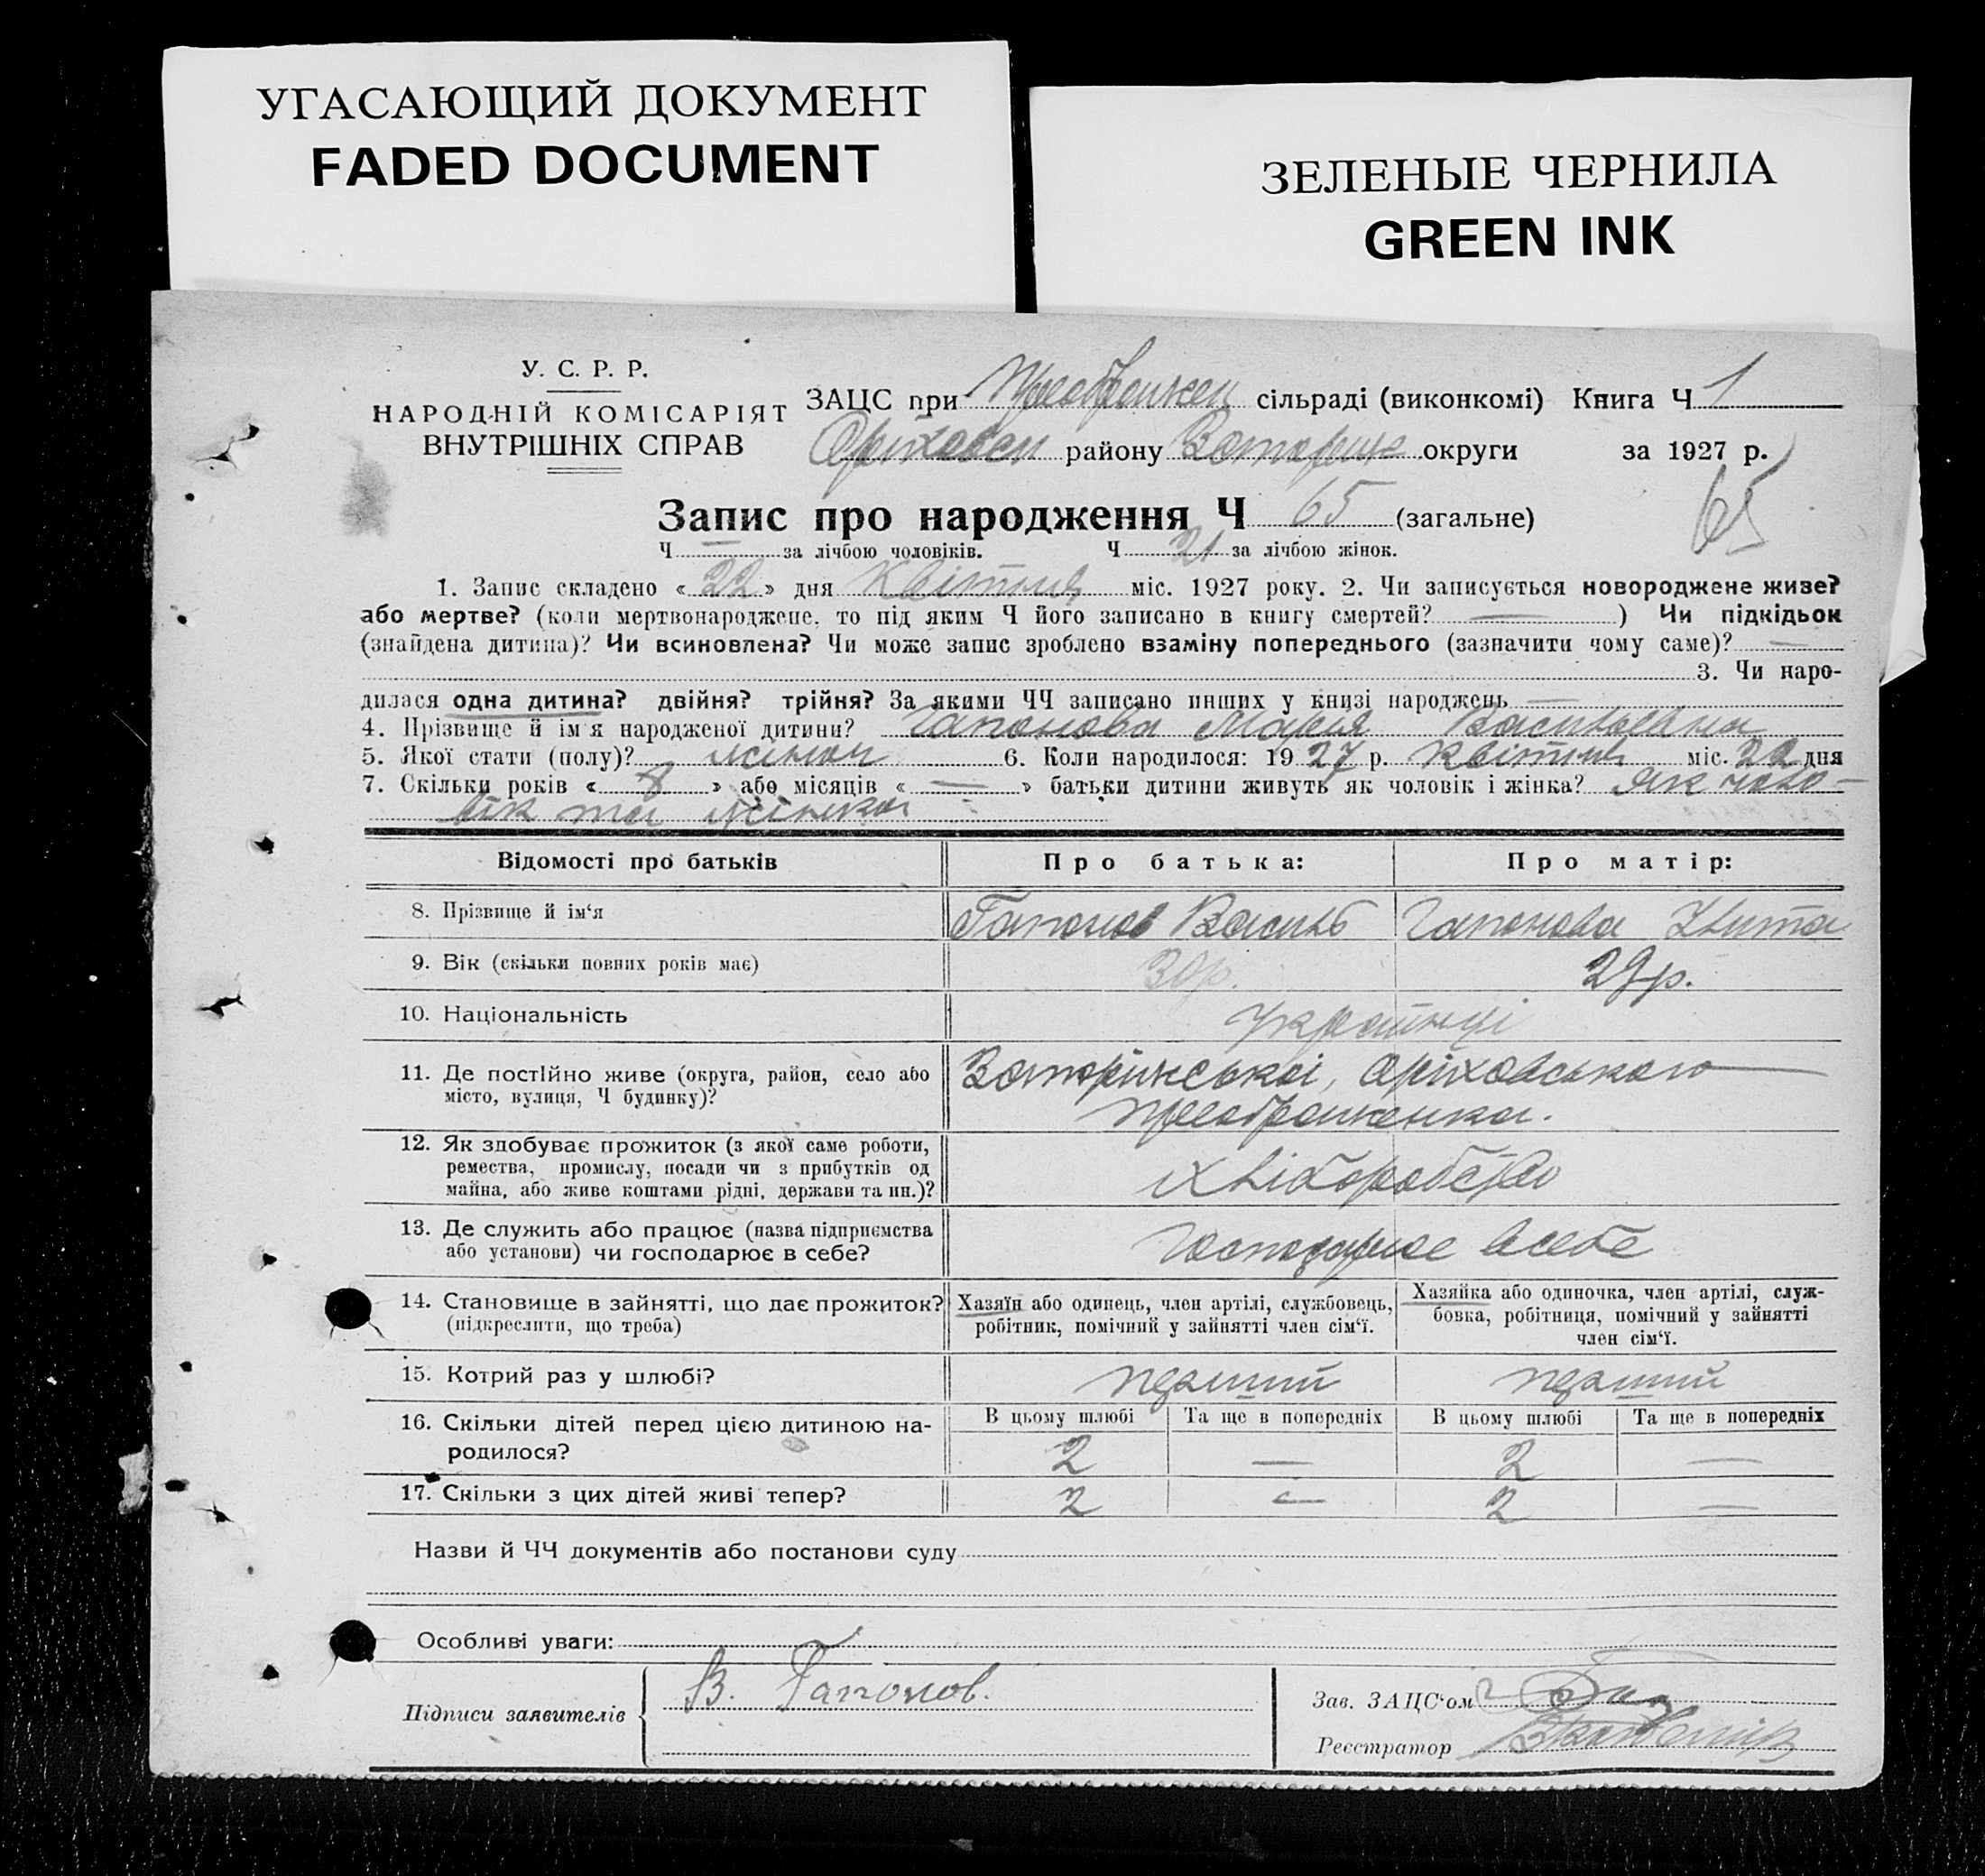 УГАСАЮЩИЙ ДОКУМЕНТ
FADED DOCUMENT
ЗЕЛЕНЫЕ ЧЕРНИЛА
GREEN INK
У. С. Р. Р.
НАРОДНІЙ КОМІСАРІЯТ
ВНУТРІШНІХ СПРАВ
ЗАЦС при Преображен сільраді (виконкомі) Книга Ч 1
Оріховск району Запоріжж округи за 1927 р.
65
Запис про народження Ч 65 (загальне)
Ч — за лічбою чоловіків. Ч 21 за лічбою жінок.
1. Запис складено « 22 » дня Квітня міс. 1927 року. 2. Чи записується новороджене живе?
або мертве? (коли мертвонароджене, то під яким Ч його записано в книгу смертей? — ) Чи підкідьок
(знайдена дитина)? Чи всиновлена? Чи може запис зроблено взаміну попереднього (зазначити чому саме)? —
3. Чи наро-
дилася одна дитина? двійня? трійня? За якими ЧЧ записано инших у книзі народжень —
4. Прізвище й ім'я народженої дитини? Гапонова Марія Васильевна
5. Якої стати (полу)? жіноч 6. Коли народилося: 19 27 р. Квітня міс. 22 дня
7. Скільки років « 8 » або місяців « — » батьки дитини живуть як чоловік і жінка? як чоло-
вік та жінка
Відомості про батьків Про батька: Про матір:
8. Прізвище й ім'я Гапонов Василь Гапонова
9. Вік (скільки повних років має) 30р. 29р.
10. Національність Українці
11. Де постійно живе (округа, район, село або
місто, вулиця, Ч будинку)?
Запоріжської, Оріховського
Преображенка.
12. Як здобуває прожиток (з якої саме роботи,
ремества, промислу, посади чи з прибутків од
майна, або живе коштами рідні, держави та ин.)?
Хліборобство
13. Де служить або працює (назва підприємства
або установи) чи господарює в себе?
Господарює всебе
14. Становище в зайнятті, що дає прожиток?
(підкреслити, що треба)
Хазяїн або одинець, член артілі, службовець,
робітник, помічний у зайнятті член сім'ї.
Хазяйка або одиночка, член артілі, служ-
бовка, робітниця, помічний у зайнятті
член сім'ї.
15. Котрий раз у шлюбі? перший перший
16. Скільки дітей перед цією дитиною на-
родилося?
В цьому шлюбі Та ще в попередніх В цьому шлюбі Та ще в попередніх
2 — 2 —
17. Скільки з цих дітей живі тепер? 2 — 2 —
Назви й ЧЧ документів або постанови суду
Особливі уваги:
Підписи заявителів В. Гапонов.
Зав. ЗАЦС'ом
Реєстратор